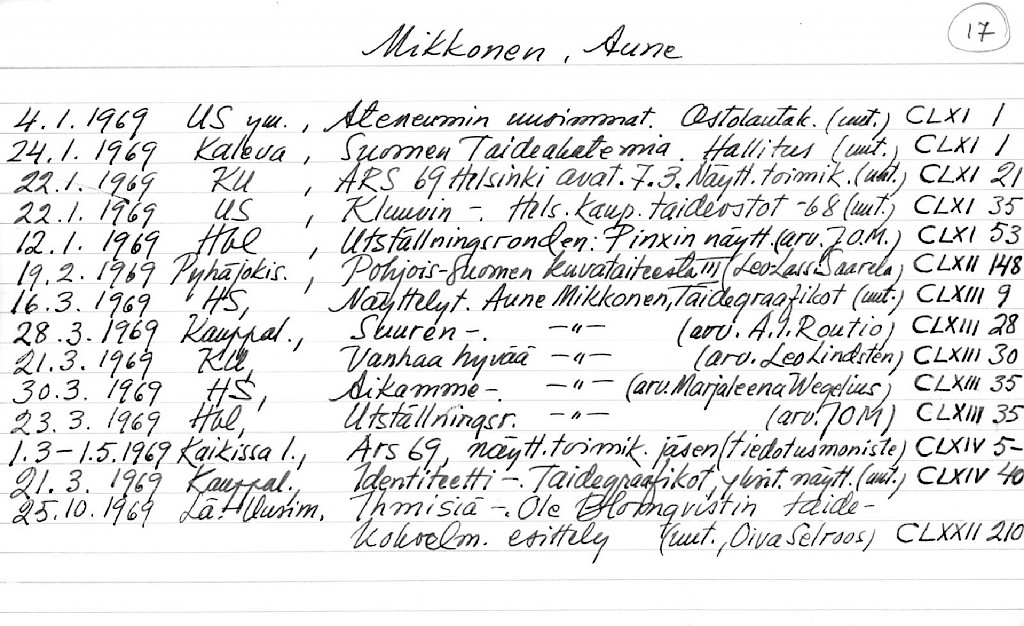 17
Mikkonen, Aune
4.1.1969 US ym., Ateneumin uusimmat. Ostolautak. (uut.) CLXI 1
24.1.1969 Kaleva, Suomen Taideakatemia. Hallitus (uut.) CLXI 1
22.1.1969 KU, ARS 69 Helsinki avat. 7.3. Näytt.toimik. (uut.) CLXI 21
22.1.1969 US, Kluuvin -. Hels. kaup. taideostot -68 (uut.) CLXI 35
12.1.1969 Hbl, Utställningsronden: Pinxin näytt. (arv. JOM.) CLXI 53
19.2.1969 Pyhäjokis., Pohjois-Suomen kuvataiteesta III (Leo Lassi Saarela) CLXII 148
16.3.1969 HS, Näyttelyt. Aune Mikkonen, Taidegraafikot (uut.) CLXIII 9
28.3.1969 Kauppal., Suuren -. -"- (arv. A.I. Routio) CLXIII 28
21.3.1969 KU, Vanhaa hyvää -"- (arv. Leo Lindsten) CLXIII 30
30.3.1969 HS, Aikamme -. -"- (arv. Marjaleena Wegelius) CLXIII 35
23.3.1969 Hbl, Utställningsr. -"- (arv. JOM) CLXIII 35
1.3-1.5.1969 Kaikissa l., Ars 69, näytt.toimik. jäsen (tiedotusmoniste) CLXIV 5-
21.3.1969 Kauppal., Identiteetti -. Taidegraafikot, yksit. näytt. (uut.) CLXIV 40
25.10.1969 Lä. Uusim. Ihmisiä -. Ole Holmqvistin taide-
kokoelm. esittely (uut., Oiva Selroos) CLXXII 210